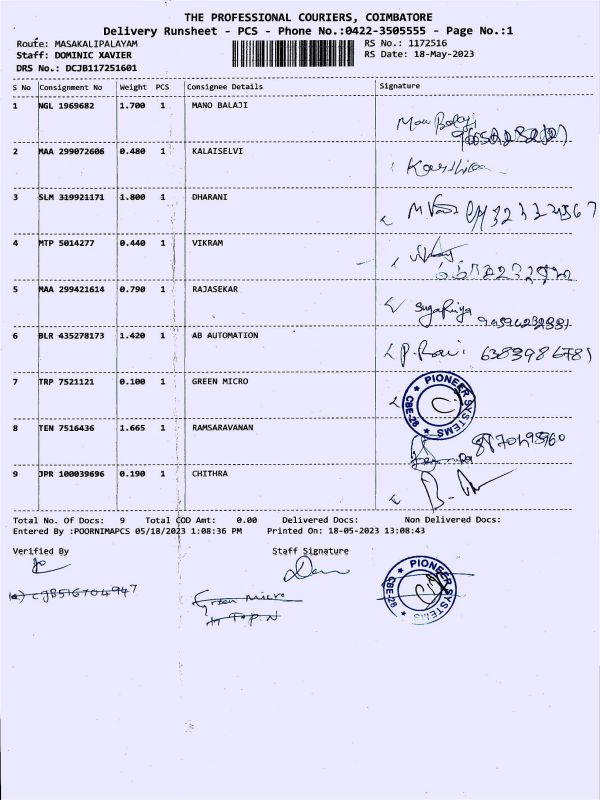 THE PROFESSIONAL COURIERS, COIMBATORE
Delivery Runsheet - PCS - Phone No.:0422-3505555 - Page No.:1
Route: MASAKALIPALAYAM RS No.: 1172516
Staff: DOMINIC XAVIER RS Date: 18-May-2023
DRS No.: DCJB117251601
S No Consignment No Weight PCS Consignee Details Signature
1 NGL 1969682 1.700 1 MANO BALAJI
Mano Balaji
2 MAA 299072606 0.480 1 KALAISELVI
3 SLM 319921171 1.800 1 DHARANI
4 MTP 5014277 0.440 1 VIKRAM
5 MAA 299421614 0.790 1 RAJASEKAR
6 BLR 435278173 1.420 1 AB AUTOMATION
P. Ravi 6383986781
7 TRP 7521121 0.100 1 GREEN MICRO
PIONEER SYSTEMS CBE-28
8 TEN 7516436 1.665 1 RAMSARAVANAN
9 JPR 100039696 0.190 1 CHITHRA
Total No. Of Docs: 9 Total COD Amt: 0.00 Delivered Docs: Non Delivered Docs:
Entered By :POORNIMAPCS 05/18/2023 1:08:36 PM Printed On: 18-05-2023 13:08:43
Verified By Staff Signature
PIONEER SYSTEMS CBE-28
Green Micro